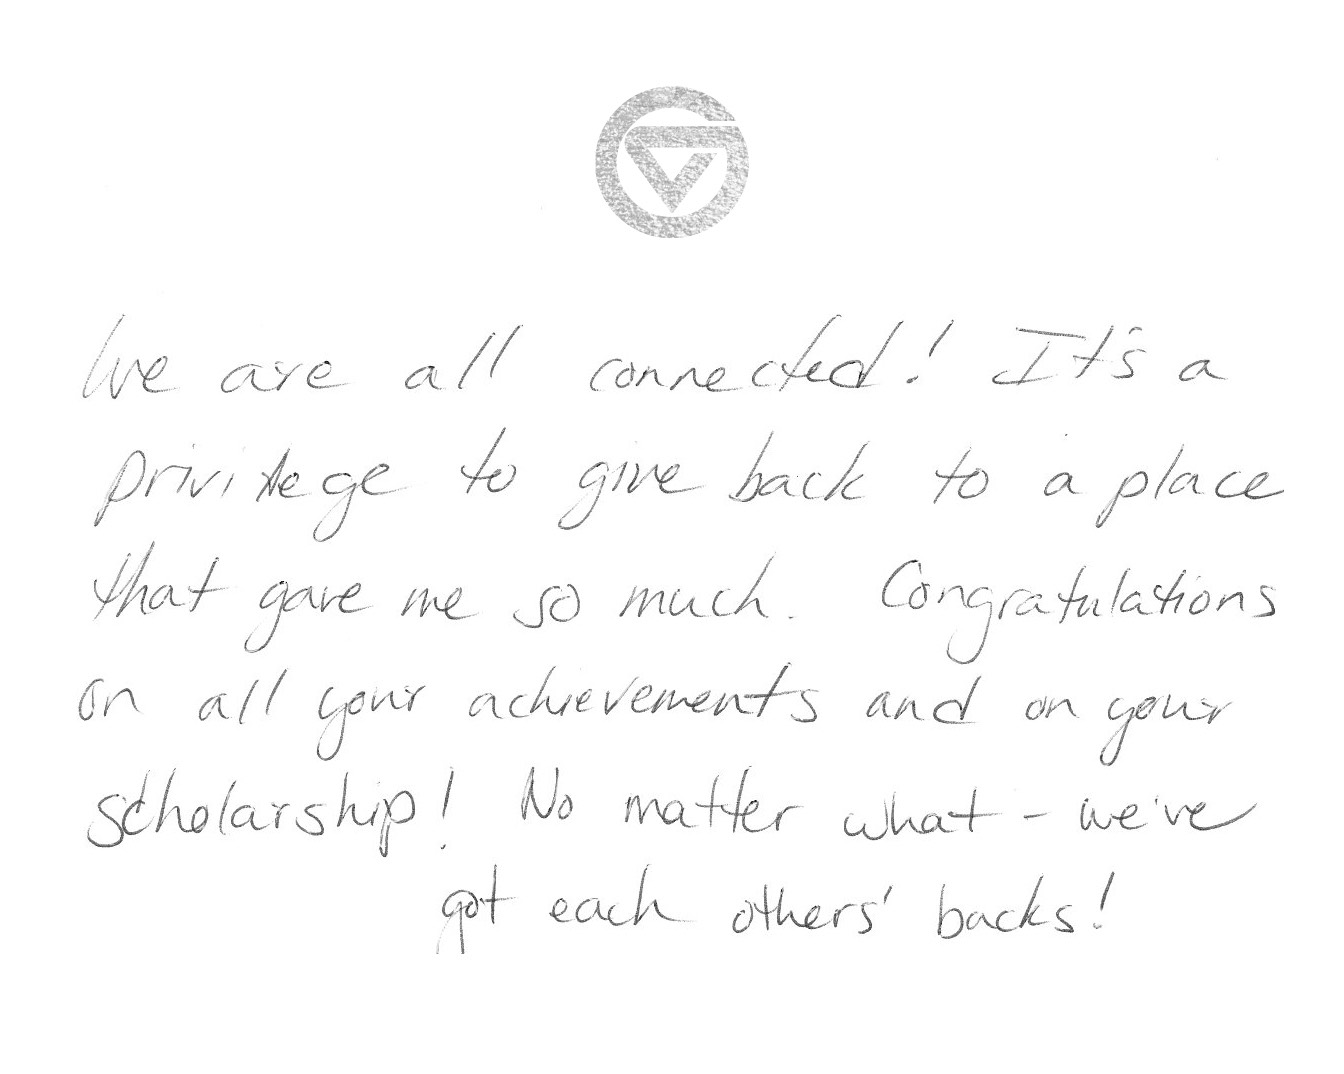 We are all connected! It's a
privilege to give back to a place
that gave me so much. Congratulations
on all your achievements and on your
scholarship! No matter what - we've
got each others' backs!